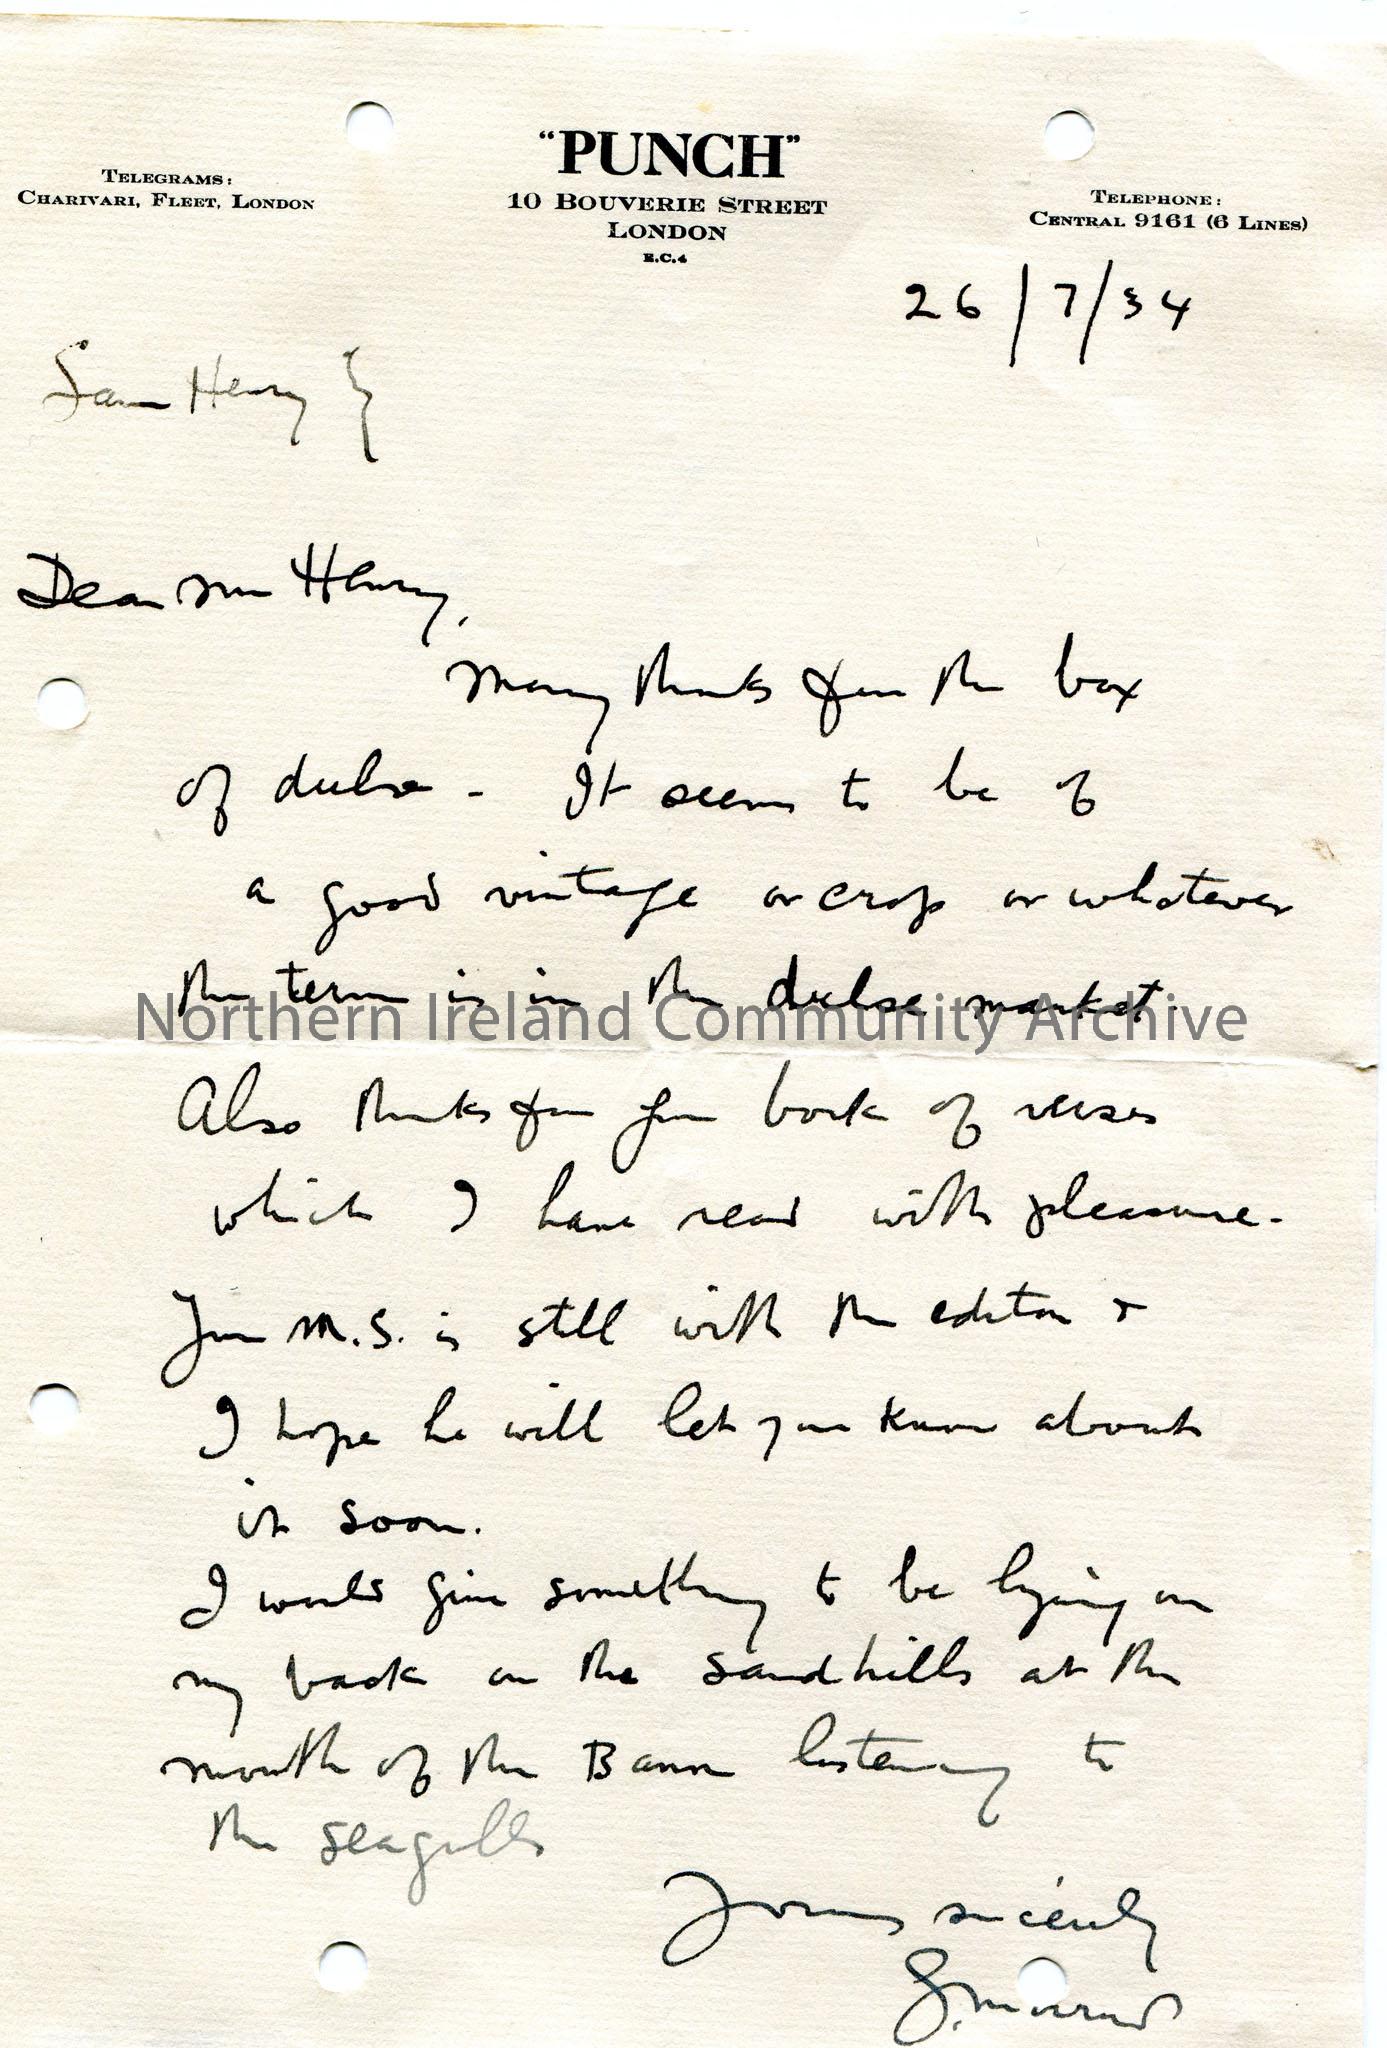 "PUNCH"
10 BOUVERIE STREET
LONDON
E.C.4
TELEGRAMS:
CHARIVARI, FLEET, LONDON
TELEPHONE:
CENTRAL 9161 (6 LINES)
26/7/34
Sam Henry }
Dear Mr Henry,
Many thanks for the box
of dulse - It seems to be of
a good vintage or crop or whatever
the term is in the dulse market.
Northern Ireland Community Archive
Also thanks for your book of verses
which I have read with pleasure.
Your M.S. is still with the editor &
I hope he will let you know about
it soon.
I would give something to be lying on
my back on the sandhills at the
mouth of the Bann listening to
the seagulls
Yours sincerely